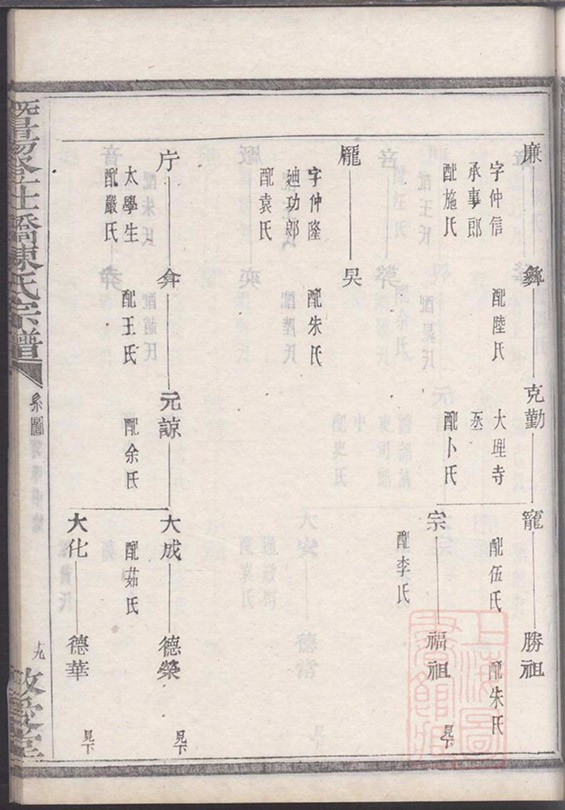 廉
字仲信
承事郎
配施氏
彝
配陸氏
克勤
大理寺
丞
配卜氏
寵
配伍氏
勝祖
配朱氏
宗
配李氏
福祖
見下
龎
字仲隆
廸功郎
配袁氏
昊
配朱氏
庁
太學生
配嚴氏
弇
配王氏
元諒
配余氏
大成
配茹氏
德榮
見下
大化
德華
見下
陳氏宗譜
系圖
十九
上海圖書館藏